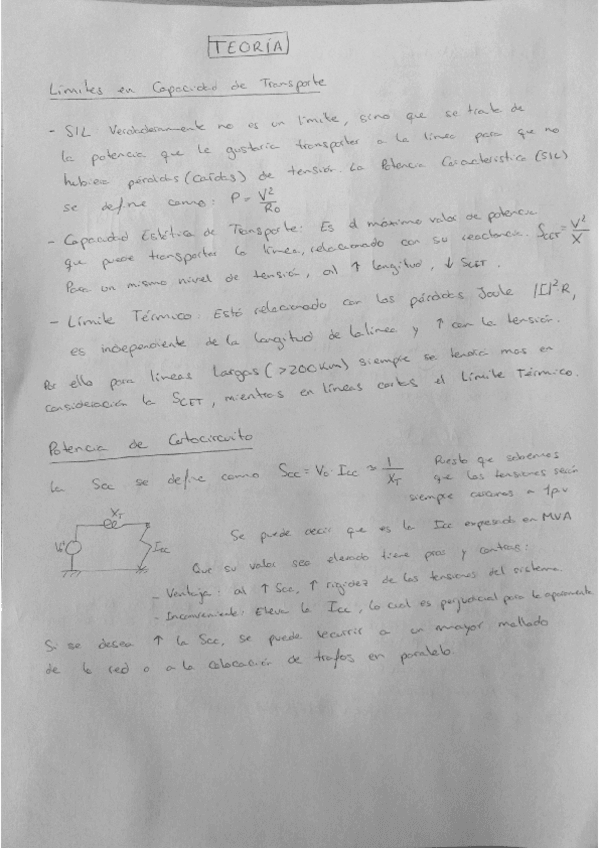 TEORÍA
Límites en Capacidad de Transporte
- SIL Verdaderamente no es un límite, sino que se trata de
la potencia que le gustaría transportar a la línea para que no
hubiera pérdidas (caídas) de tensión. La Potencia Característica (SIL)
se define como: P = V²/R₀
- Capacidad Estática de Transporte: Es el máximo valor de potencia
que puede transportar la línea, relacionado con su reactancia. S_CET = V²/X
Para un mismo nivel de tensión, al ↑ longitud, ↓ S_CET.
- Límite Térmico: Está relacionado con las pérdidas Joule |I|²R,
es independiente de la longitud de la línea y ↑ con la tensión.
Por ello para líneas largas (>200Km) siempre se tendrá mas en
consideración la S_CET, mientras en líneas cortas el Límite Térmico.
Potencia de Cortocircuito
La Scc se define como Scc = V₀ · Icc ≈ 1/X_T Puesto que sabemos
que las tensiones serán
siempre cercanas a 1pu
X_T
V₀ Icc
Se puede decir que es la Icc expresada en MVA
Que su valor sea elevado tiene pros y contras:
- Ventaja: al ↑ Scc, ↑ rigidez de las tensiones del sistema
- Inconveniente: Eleva la Icc, lo cual es perjudicial para la aparamenta
Si se desea ↑ la Scc, se puede recurrir a un mayor mallado
de la red o a la colocación de trafos en paralelo.